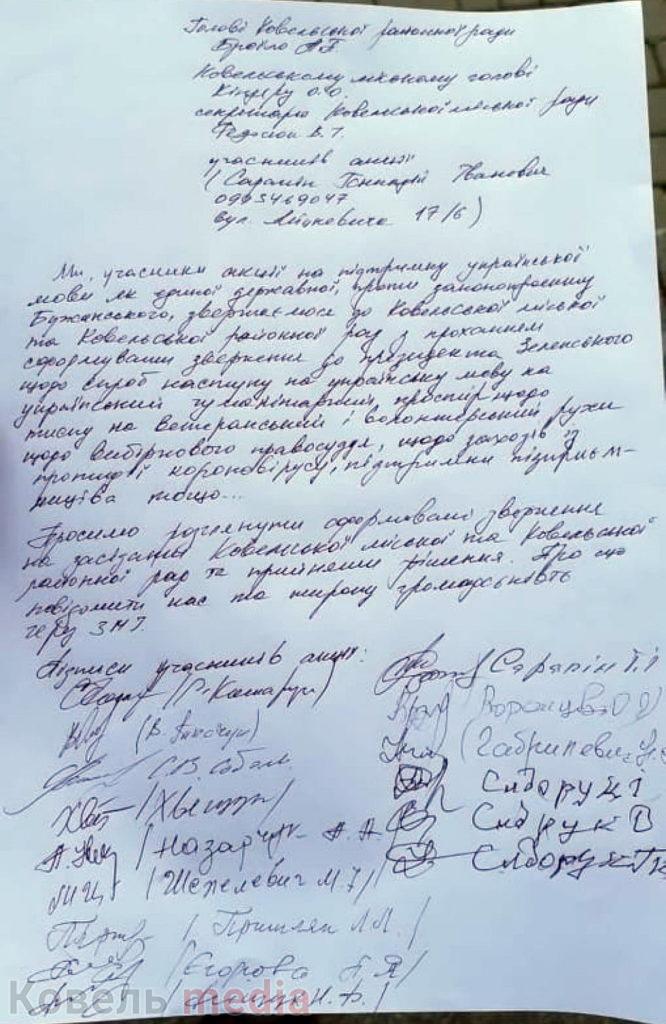 Голові Ковельської районної ради
Броїло А.П.
Ковельському міському голові
Кіндеру О.О.
секретарю Ковельської міської ради
В.Т.
учасників акції
(Сарапін Геннадій Іванович
0993469047
вул. 17/6)
Ми, учасники акції на підтримку української
мови як єдиної державної, проти законопроекту
Бужанського, звертаємося до Ковельської міської
та Ковельської районної рад з проханням
сформувати звернення до президента Зеленського
щодо спроб наступу на українську мову на
український гуманітарний простір щодо
тиску на ветеранський і волонтерський рухи
щодо вибіркового правосуддя, щодо заходів із
протидії коронавірусу, підтримки підприєм-
ництва тощо...
Просимо розглянути сформовані звернення
на засіданні Ковельської міської та Ковельської
районної рад та прийняти рішення. Про що
повідомити нас та широку громадськість
через ЗМІ.
Підписи учасників акції:
Сарапін Г.І
(В.
С.В. Соболь
Хват
Слборук І
/Назарчук А.А.
Слборук В
/Шепелевич М.
Слборук
/ Л.М./
/Єгорова А.Я/
Ковель media